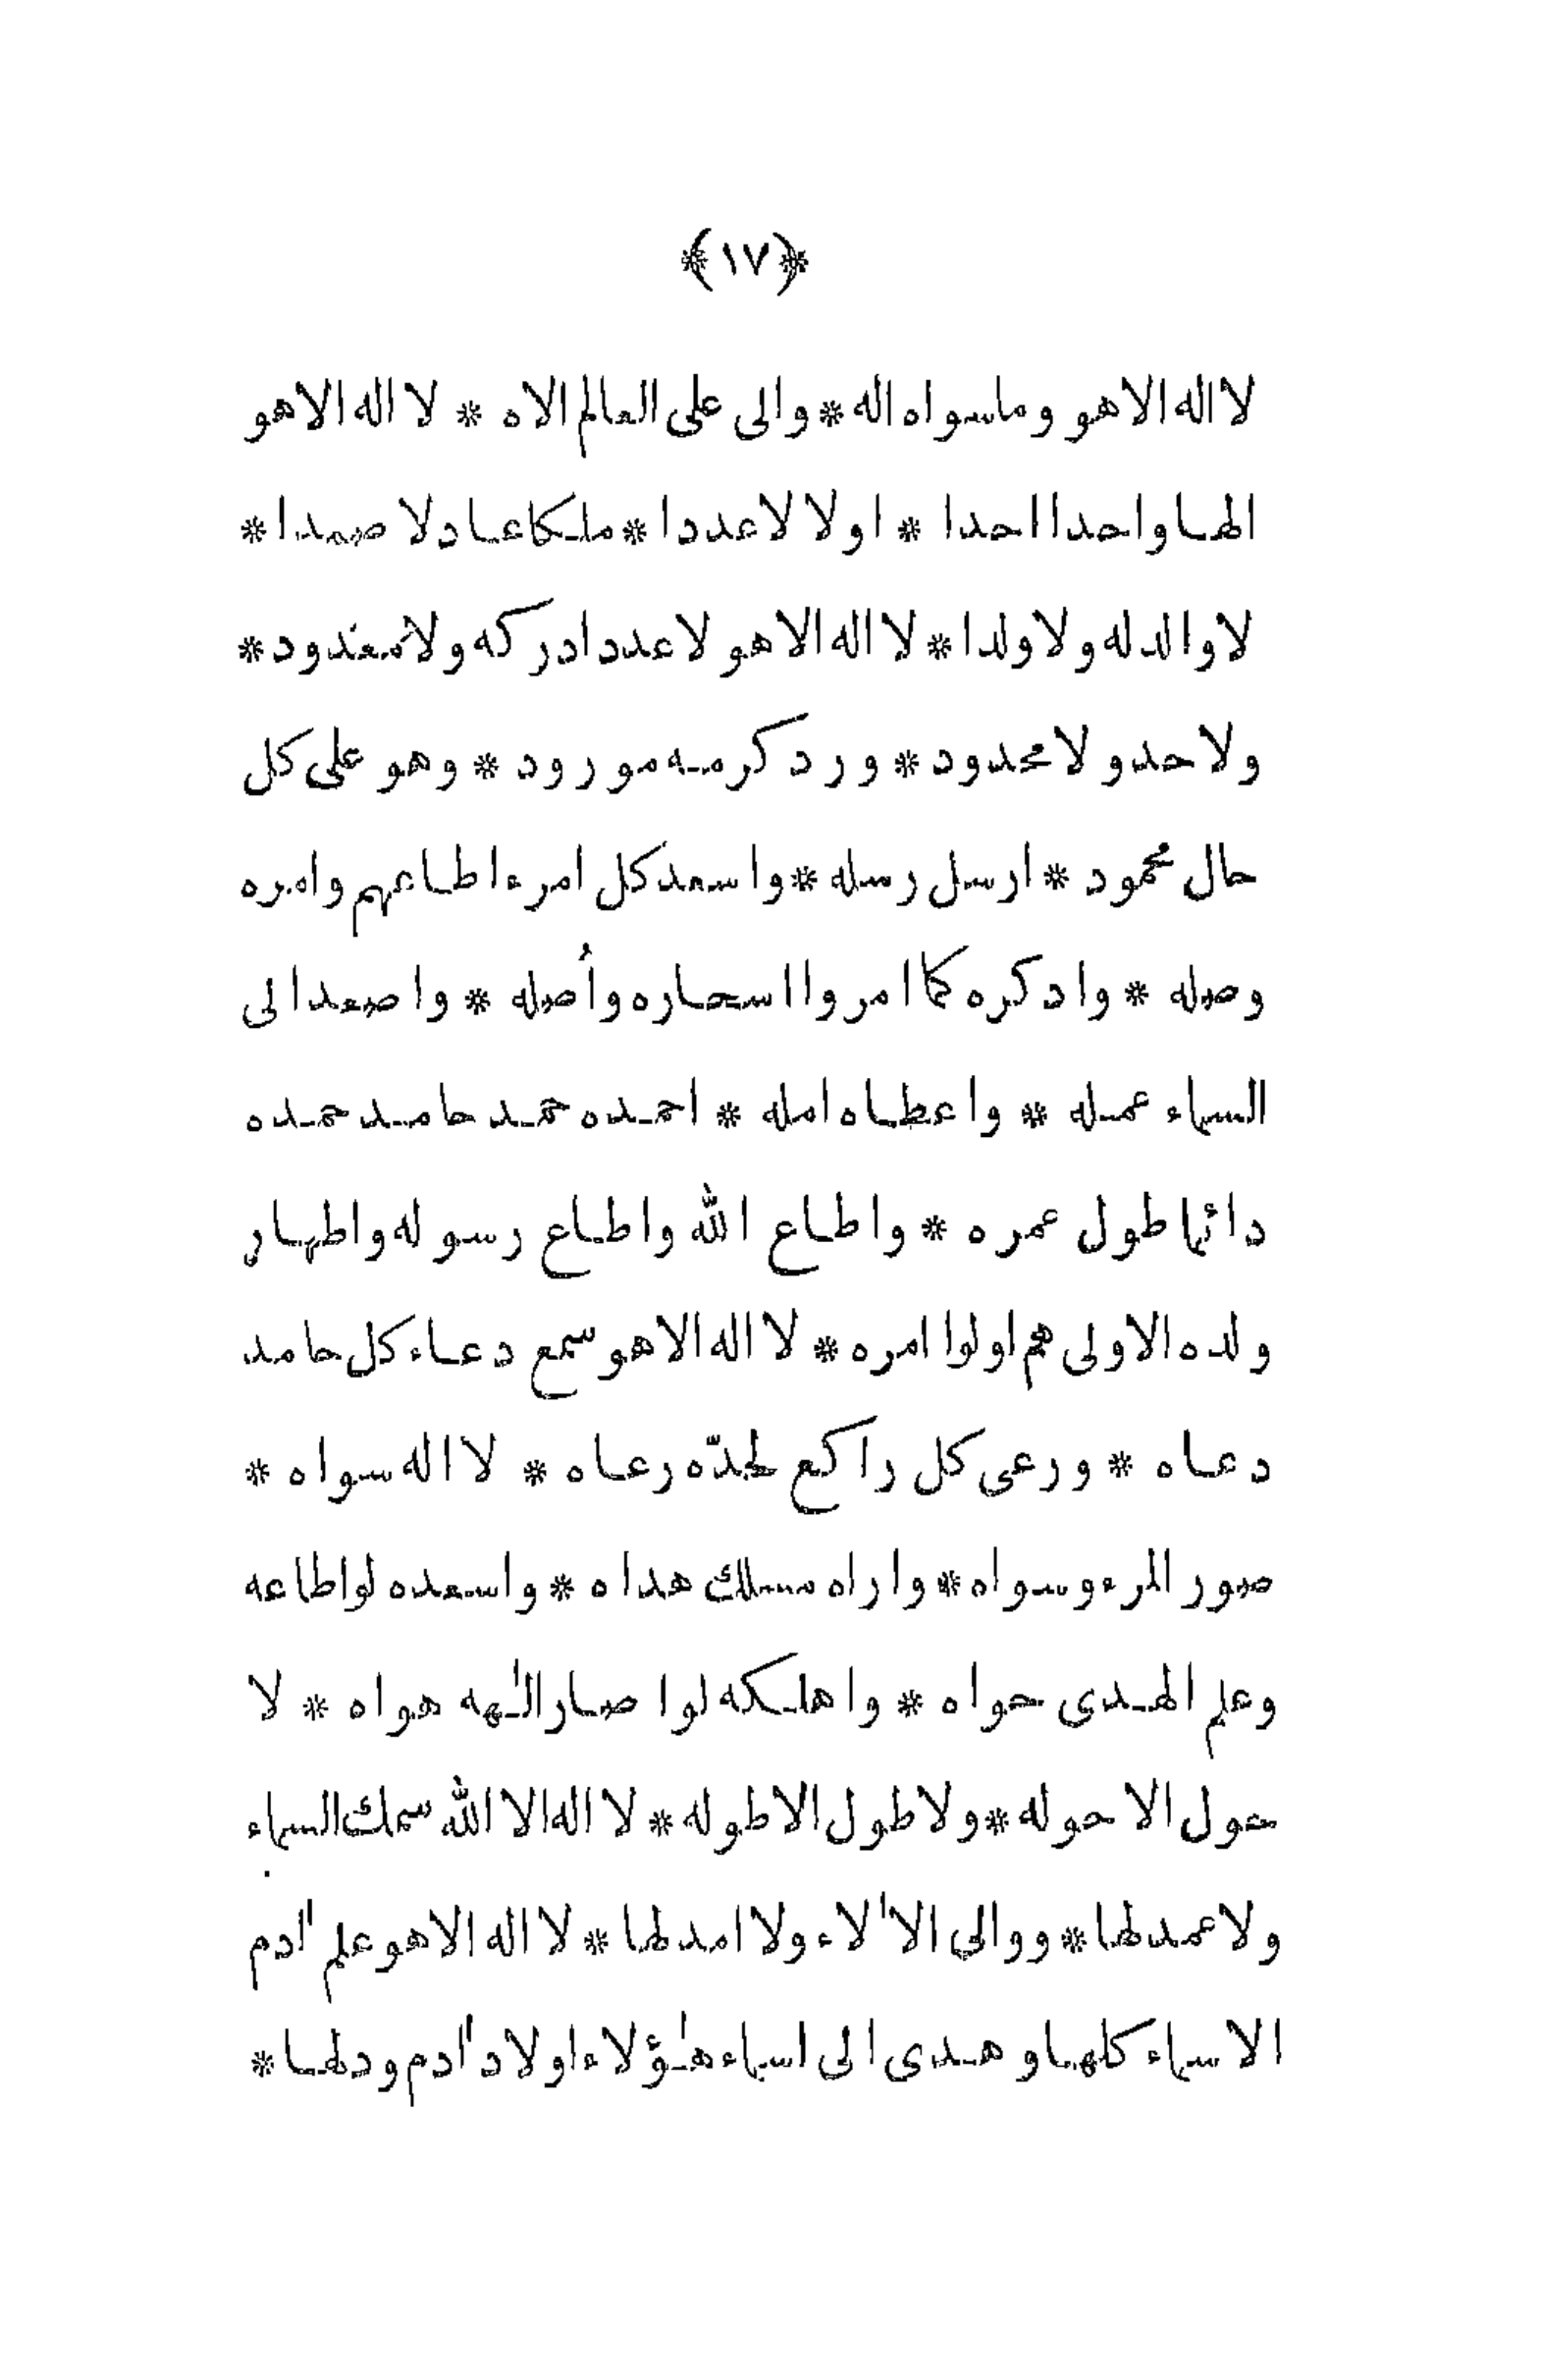 ﴿١٧﴾
لا اله الا هو وماسواه اله * والى على العالم الاه * لا اله الا هو
الهاواحدا احدا * اولا لاعددا * ملكاعادلا صمدا *
لا والد له ولا ولدا * لا اله الا هو لاعدد ادركه ولامعدود *
ولا حدو لامحدود * ورد كرمه مورود * وهو على كل
حال محمود * ارسل رسله * واسعد كل امرء اطاعهم وامره
وصله * وادكره كما امر وا اسحاره وأصله * واصعد الى
السماء عمله * واعطاه امله * احمده حمد حامد حمده
دائما طول عمره * واطاع الله واطاع رسوله واطهار
ولده الاولى هم اولوا امره * لا اله الا هو سمع دعاء كل حامد
دعاه * ورعى كل راكع لحدّه رعاه * لا اله سواه *
صور المرء وسواه * واراه مسلك هداه * واسعده لواطاعه
وعلم الهدى حواه * واهلكه لوا صار الٰهه هواه * لا
حول الا حوله * ولا طول الا طوله * لا اله الا الله سمك السماء
ولا عمد لها * ووالى الاٰلاء ولا امد لها * لا اله الا هو علم اٰدم
الاسماء كلها وهدى الى اسماء هٰؤلاء اولاد اٰدم ودلها *